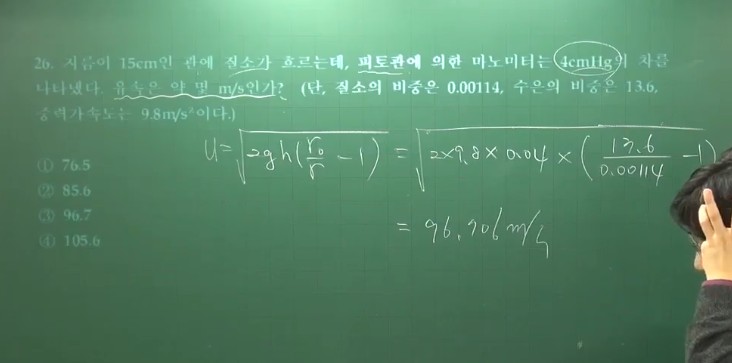 26. 지름이 15cm인 관에 질소가 흐르는데, 피토관에 의한 마노미터는 4cmHg의 차를
나타냈다. 유속은 약 몇 m/s인가? (단, 질소의 비중은 0.00114, 수은의 비중은 13.6,
중력가속도는 9.8m/s²이다.)
U = √(2gh(r₀/r - 1)) = √(2×9.8×0.04×(13.6/0.00114 - 1))
= 96.706 m/s
① 76.5
② 85.6
③ 96.7
④ 105.6